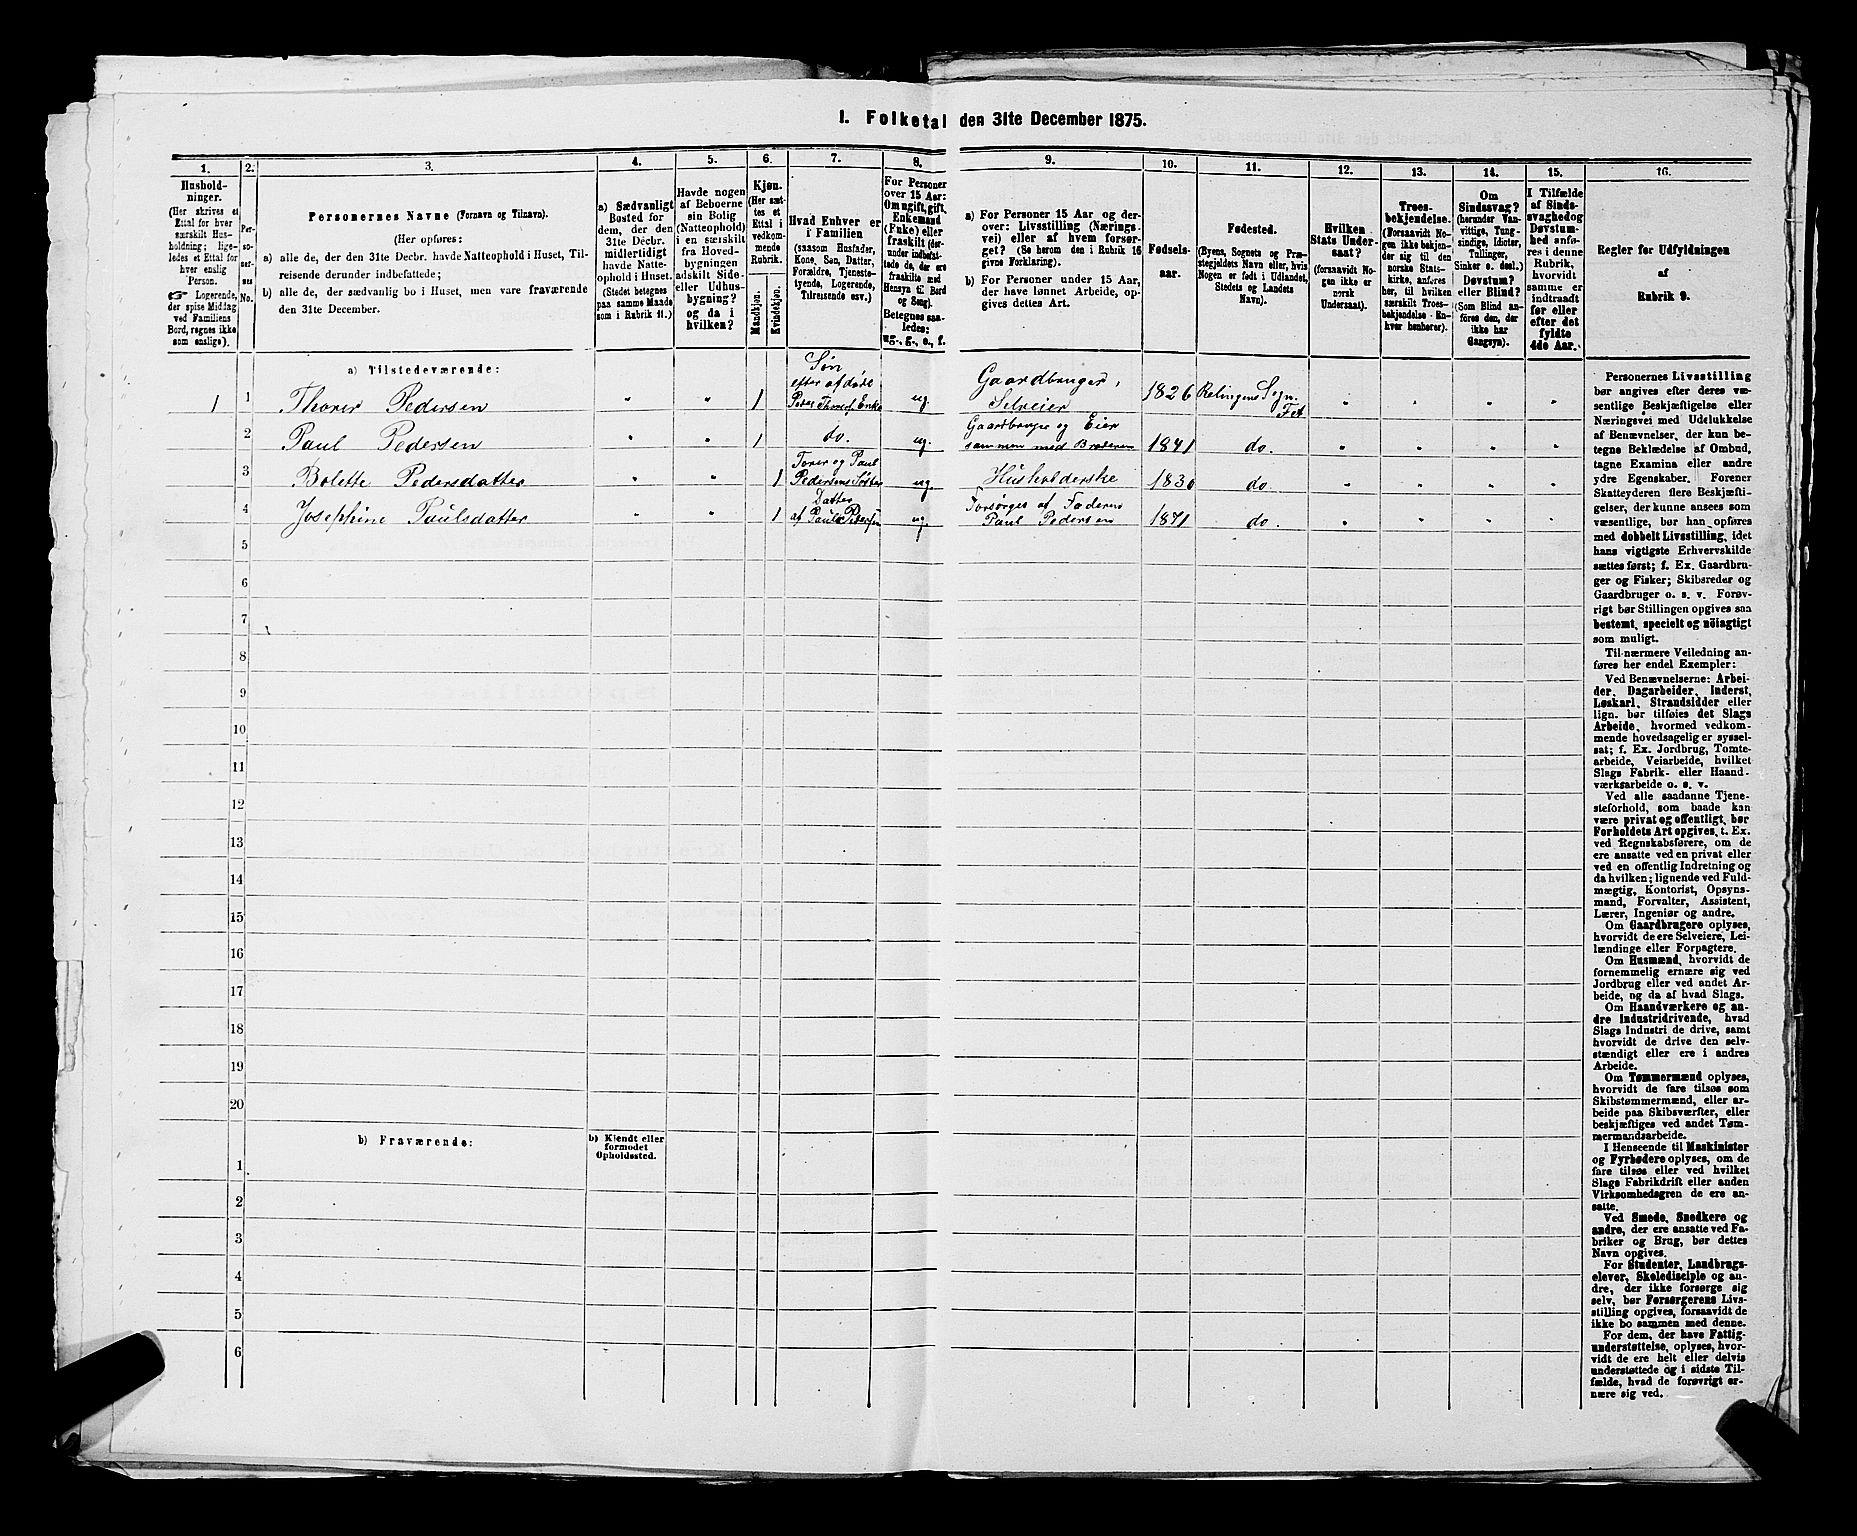 I. Folketal den 31te December 1875.
1.
2.
3.
4.
5.
6.
7.
8.
9.
10.
11.
12.
13.
14.
15.
16.
Hushold-
ninger.
(Her skrives et
Ettal for hver
særskilt Hus-
holdning; lige-
ledes et Ettal for
hver enslig
Person.
☞ Logerende,
der spise Middag
ved Familiens
Bord, regnes ikke
som enslige).
Per-
so-
ner-
nes
No.
Personernes Navne (Fornavn og Tilnavn).
(Her opføres:
a) alle de, der den 31te Decbr. havde Natteophold i Huset, Til-
reisende derunder indbefattede;
b) alle de, der sædvanlig bo i Huset, men vare fraværende
den 31te December.
a) Sædvanligt
Bosted for
dem, der den
31te Decbr.
midlertidigt
havde Natte-
ophold i Huset.
(Stedet betegnes
paa samme Maade
som i Rubrik 11.)
Havde nogen
af Beboerne
sin Bolig
(Natteophold)
i en særskilt
fra Hoved-
bygningen
adskilt Side-
eller Udhus-
bygning?
og da i
hvilken?
Kjøn.
(Her sæt-
tes et
Ettal i
vedkom-
mende
Rubrik.
Mandkjøn.
Kvindekjøn.
Hvad Enhver er
i Familien
(saasom Husfader,
Kone, Søn, Datter,
Forældre, Tjeneste-
tyende, Logerende,
Tilreisende osv.)
For Personer
over 15 Aar:
Om ugift, gift,
Enkemand
(Enke) eller
fraskilt (der-
under indbefat-
tede de, der ere
fraskilte med
Hensyn til Bord
og Seng).
Betegnes saa-
ledes:
ug., g., e., f.
a) For Personer 15 Aar og der-
over: Livsstilling (Nærings-
vei) eller af hvem forsør-
get? (Se herom den i Rubrik 16
givne Forklaring).
b) For Personer under 15 Aar,
der have lønnet Arbeide, op-
gives dettes Art.
Fødsels-
aar.
Fødested.
(Byens, Sognets og Præ-
stegjeldets Navn eller, hvis
Nogen er født i Udlandet,
Stedets og Landets
Navn).
Hvilken
Stats Under-
saat?
(forsaavidt No-
gen ikke er
norsk
Undersaat).
Troes-
bekjendelse.
(Forsaavidt No-
gen ikke bekjen-
der sig til den
norske Stats-
kirke, anføres
her, til hvilken
særskilt Troes-
bekjendelse En-
hver henhører).
Om
Sindssvag?
(herunder Van-
vittige, Tung-
sindige, Idioter,
Tullinger,
Sinker o. desl.)
Døvstum?
eller Blind?
(Som Blind an-
føres den, der
ikke har
Gangsyn).
I Tilfælde
af Sinds-
svaghed og
Døvstum-
hed anfø-
res i denne
Rubrik,
hvorvidt
samme er
indtraadt
før eller
efter det
fyldte
4de Aar.
Regler for Udfyldningen
af
Rubrik 9.
a) Tilstedeværende:
1 1 Thorer Pedersen " " 1 Søn efter afdøde Peder Thorers. Enke ug. Gaardbruger, Selveier 1826 Relingens Sogn. Fet " " " "
2 Paul Pedersen " " 1 do. ug. Gaardbruger og Eier sammen med Broderen 1841 do. " " " "
3 Bolette Pedersdatter " " 1 Torer og Paul Pedersens Søster ug. Husholderske 1830 do. " " " "
4 Josephine Paulsdatter " " 1 Datter af Paul Pedersen ug. Forsørges af Faderen Paul Pedersen 1871 do. " " " "
5
6
7
8
9
10
11
12
13
14
15
16
17
18
19
20
b) Fraværende:
b) Kjendt eller
formodet
Opholdssted.
1
2
3
4
5
6
Personernes Livsstilling
bør angives efter deres væ-
sentlige Beskjæftigelse eller
Næringsvei med Udelukkelse
af Benævnelser, der kun be-
tegne Beklædelse af Ombud,
tagne Examina eller andre
ydre Egenskaber. Forener
Skatteyderen flere Beskjæfti-
gelser, der kunne ansees som
væsentlige, bør han opføres
med dobbelt Livsstilling, idet
hans vigtigste Erhvervskilde
sættes først; f. Ex. Gaardbru-
ger og Fisker; Skibsreder og
Gaardbruger o. s. v. Forøv-
rigt bør Stillingen opgives saa
bestemt, specielt og nöiagtigt
som muligt.
Til nærmere Veiledning an-
føres her endel Exempler:
Ved Benævnelserne: Arbei-
der, Dagarbeider, Inderst,
Løskarl, Strandsidder eller
lign. bør tilføies det Slags
Arbeide, hvormed vedkom-
mende hovedsagelig er syssel-
sat; f. Ex. Jordbrug, Tomte-
arbeide, Veiarbeide, hvilket
Slags Fabrik- eller Haand-
værksarbeide o. s. v.
Ved alle saadanne Tjene-
steforhold, som baade kan
være privat og offentligt, bør
Forholdets Art opgives, t. Ex.
ved Regnskabsførere, om de
ere ansatte ved en privat eller
ved en offentlig Indretning og
da hvilken; lignende ved Fuld-
mægtig, Kontorist, Opsyns-
mand, Forvalter, Assistent,
Lærer, Ingeniør og andre.
Om Gaardbrugere oplyses,
hvorvidt de ere Selveiere, Lei-
lændinge eller Forpagtere.
Om Husmænd, hvorvidt de
fornemmelig ernære sig ved
Jordbrug eller ved andet Ar-
beide, og da af hvad Slags.
Om Haandværkere og an-
dre Industridrivende, hvad
Slags Industri de drive, samt
hvorvidt de drive den selv-
stændigt eller ere i andres
Arbeide.
Om Tømmermænd oplyses,
hvorvidt de fare tilsøs som
Skibstømmermænd, eller ar-
beide paa Skibsværfter, eller
beskjæftiges ved andet Tøm-
mermandsarbeide.
I Henseende til Maskinister
og Fyrbødere oplyses, om de
fare tilsøs eller ved hvilket
Slags Fabrikdrift eller anden
Virksomhedsgren de ere an-
satte.
Ved Smede, Snedkere og
andre, der ere ansatte ved Fa-
briker og Brug, bør dettes
Navn opgives.
For Studenter, Landbrugs-
elever, Skoledisciple og an-
dre, der ikke forsørge sig
selv, bør Forsørgerens Livs-
stilling opgives, forsaavidt de
ikke bo sammen med denne.
For dem, der have Fattig-
understøttelse, oplyses, hvor-
vidt de ere helt eller delvis
understøttede og i sidste Til-
fælde, hvad de forøvrigt er-
nære sig ved.